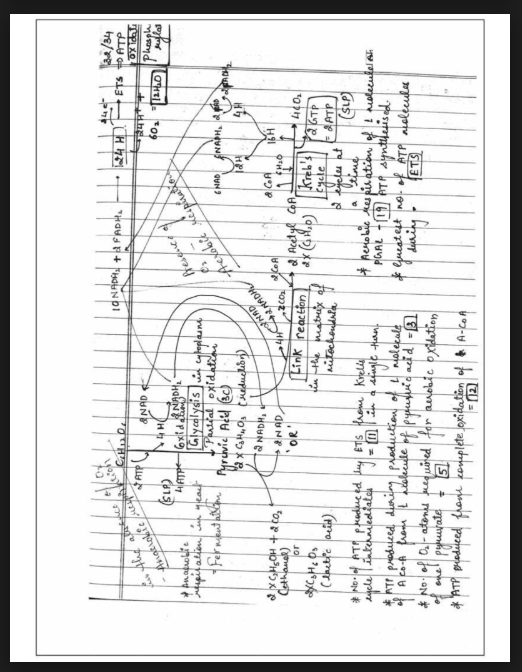 C6H12O6
2ATP
(SLP) 4ATP
2NAD
4H
2NADH2
oxidation
Glycolysis in cytoplasm
Partial oxidation
Pyruvic Acid (3C) (reduction)
2 x C3H4O3
2NADH2
2NAD
'OR'
in the absence of O2
Anaerobic
* Anaerobic
respiration in
= Fermentation
2 x C2H5OH + 2CO2
(ethanol) or
2 x C3H6O3
(lactic acid)
10NADH2 + 2FADH2
24H
ETS
ATP
24H+ +
6O2 = 12H2O
Presence of O2
Aerobic respiration
2NAD
2NADH2
4H
2CO2
2CoA
Link reaction
in the matrix of
mitochondria
2 Acetyl CoA
2 x (C2H3O)
2CoA
6H2O
Kreb's
cycle
2 cycles at
a time
6NAD
6NADH2
12H
2FAD
2FADH2
4H
16H
4CO2
2GTP
= 2ATP
(SLP)
* Aerobic respiration of 1 molecule of
PGAL - 19 ATP synthesised.
* Greatest no. of ATP molecules
during. ETS
* No. of ATP produced by ETS from Krebs
cycle intermediates = 11 in a single turn.
* ATP produced during production of 1 molecule
of A Co-A from 1 molecule of pyruvic acid = 3
* No. of O2-atoms required for aerobic oxidation
of one pyruvate = 5
* ATP produced from complete oxidation of A-CoA
= 12